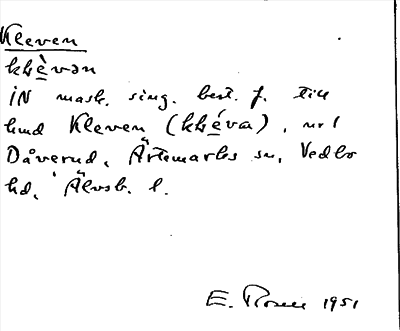 Kleven
klèvən
iN mask. sing. best. f. till
hmd Kleven (kléva), nr 1
Dåverud, Ärtemarks sn, Vedbo
hd, Älvsb. l.
E. 1951